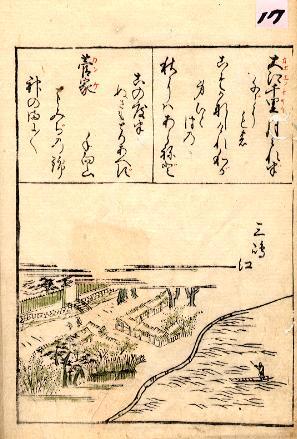 17
大江千里 月みれば
ちゞに物
こそかなしけれわが
身ひとつの
秋にはあらねど
このたびは
ぬさもとりあへず
菅家
手向山
もみぢの錦
神のまに〳〵
三嶋江